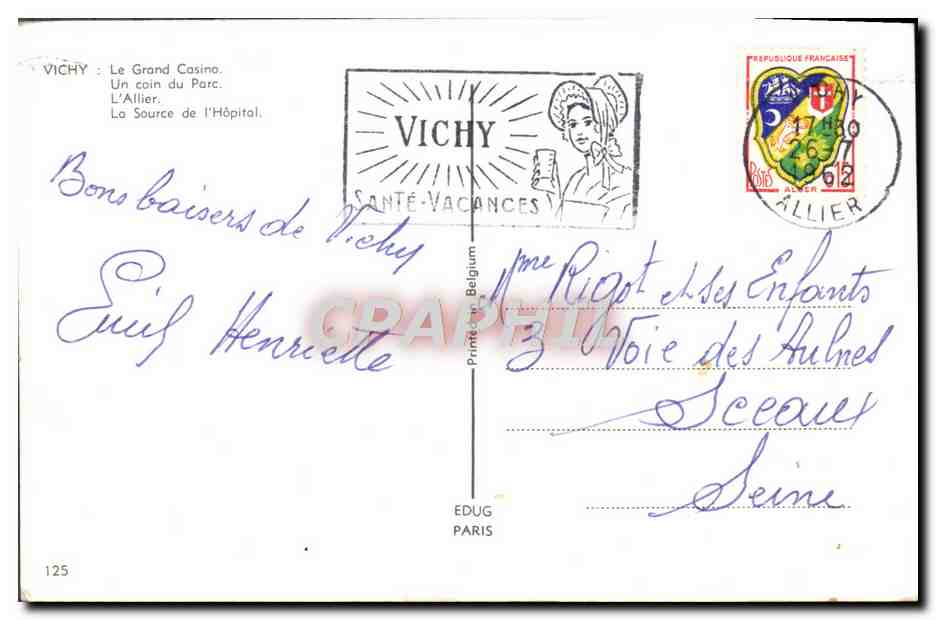 VICHY : Le Grand Casino.
Un coin du Parc.
L'Allier.
La Source de l'Hôpital.
VICHY
SANTÉ-VACANCES
REPUBLIQUE FRANÇAISE
POSTES
ALGER
17 H 30
26-7
1962
ALLIER
Bons baisers de Vichy
Emil Henriette
Printed in Belgium
CPAPHIL
Mme Rigot et ses Enfants
3 Voie des Aulnes
Sceaux
Seine
EDUG
PARIS
125